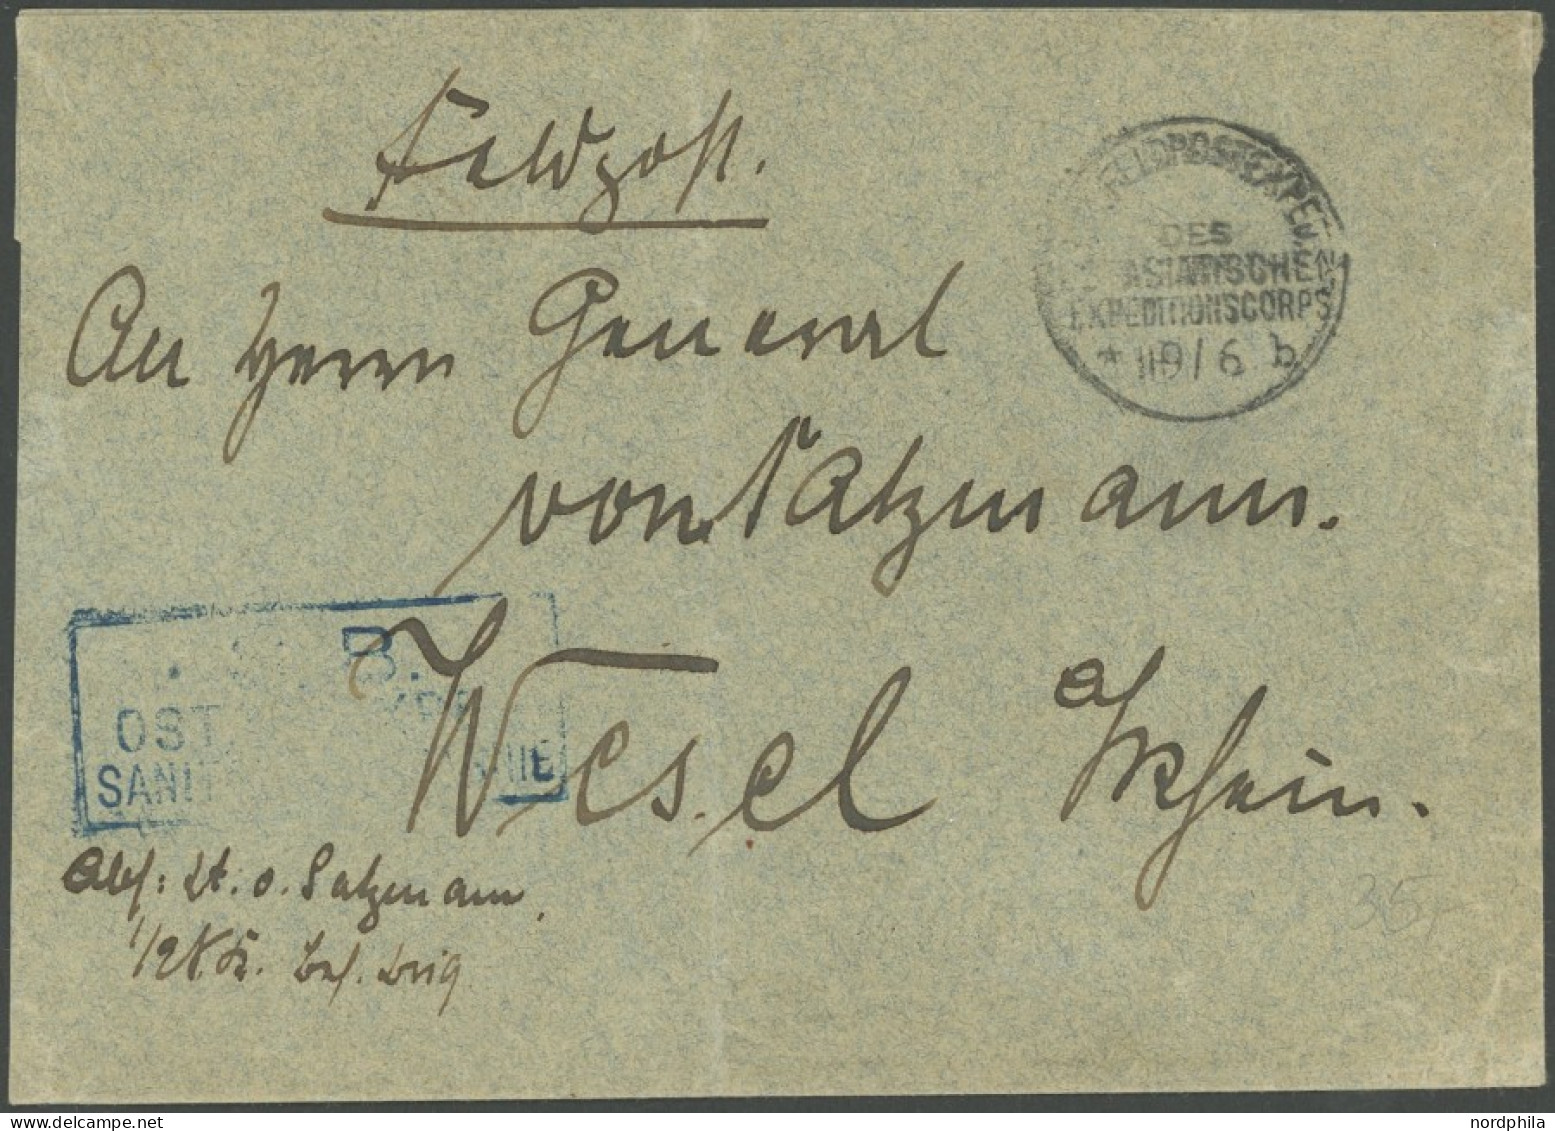 Feldpost.
FELDPOSTEXPED
DES
ASIATISCHEN
EXPEDITIONSCORPS
/6 b
An Herrn General
von Salzmann.
Wesel a/Rhein.
B.
OST
SANI
Abs: Lt. v. Salzmann,
35,-
nordphila